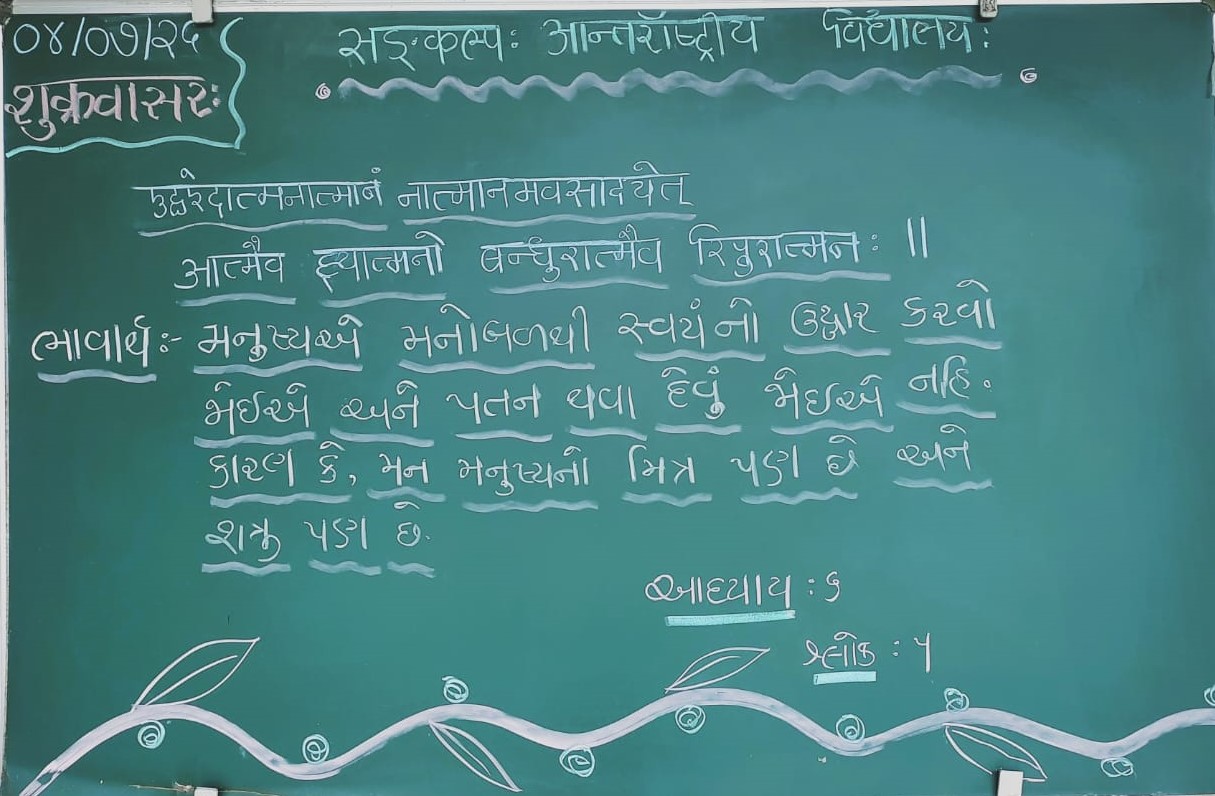 ०४/०७/२५
सङ्कल्पः आन्तर्राष्ट्रीय विद्यालयः
शुक्रवासरः
उद्धरेदात्मनात्मानं नात्मानमवसादयेत्
आत्मैव ह्यात्मनो बन्धुरात्मैव रिपुरात्मनः ॥
ભાવાર્થ:- મનુષ્યએ મનોબળથી સ્વયંનો ઉદ્ધાર કરવો
જોઈએ અને પતન થવા દેવું જોઈએ નહિ.
કારણ કે, મન મનુષ્યનો મિત્ર પણ છે અને
શત્રુ પણ છે.
આધ્યાય : ૬
શ્લોક : ૫